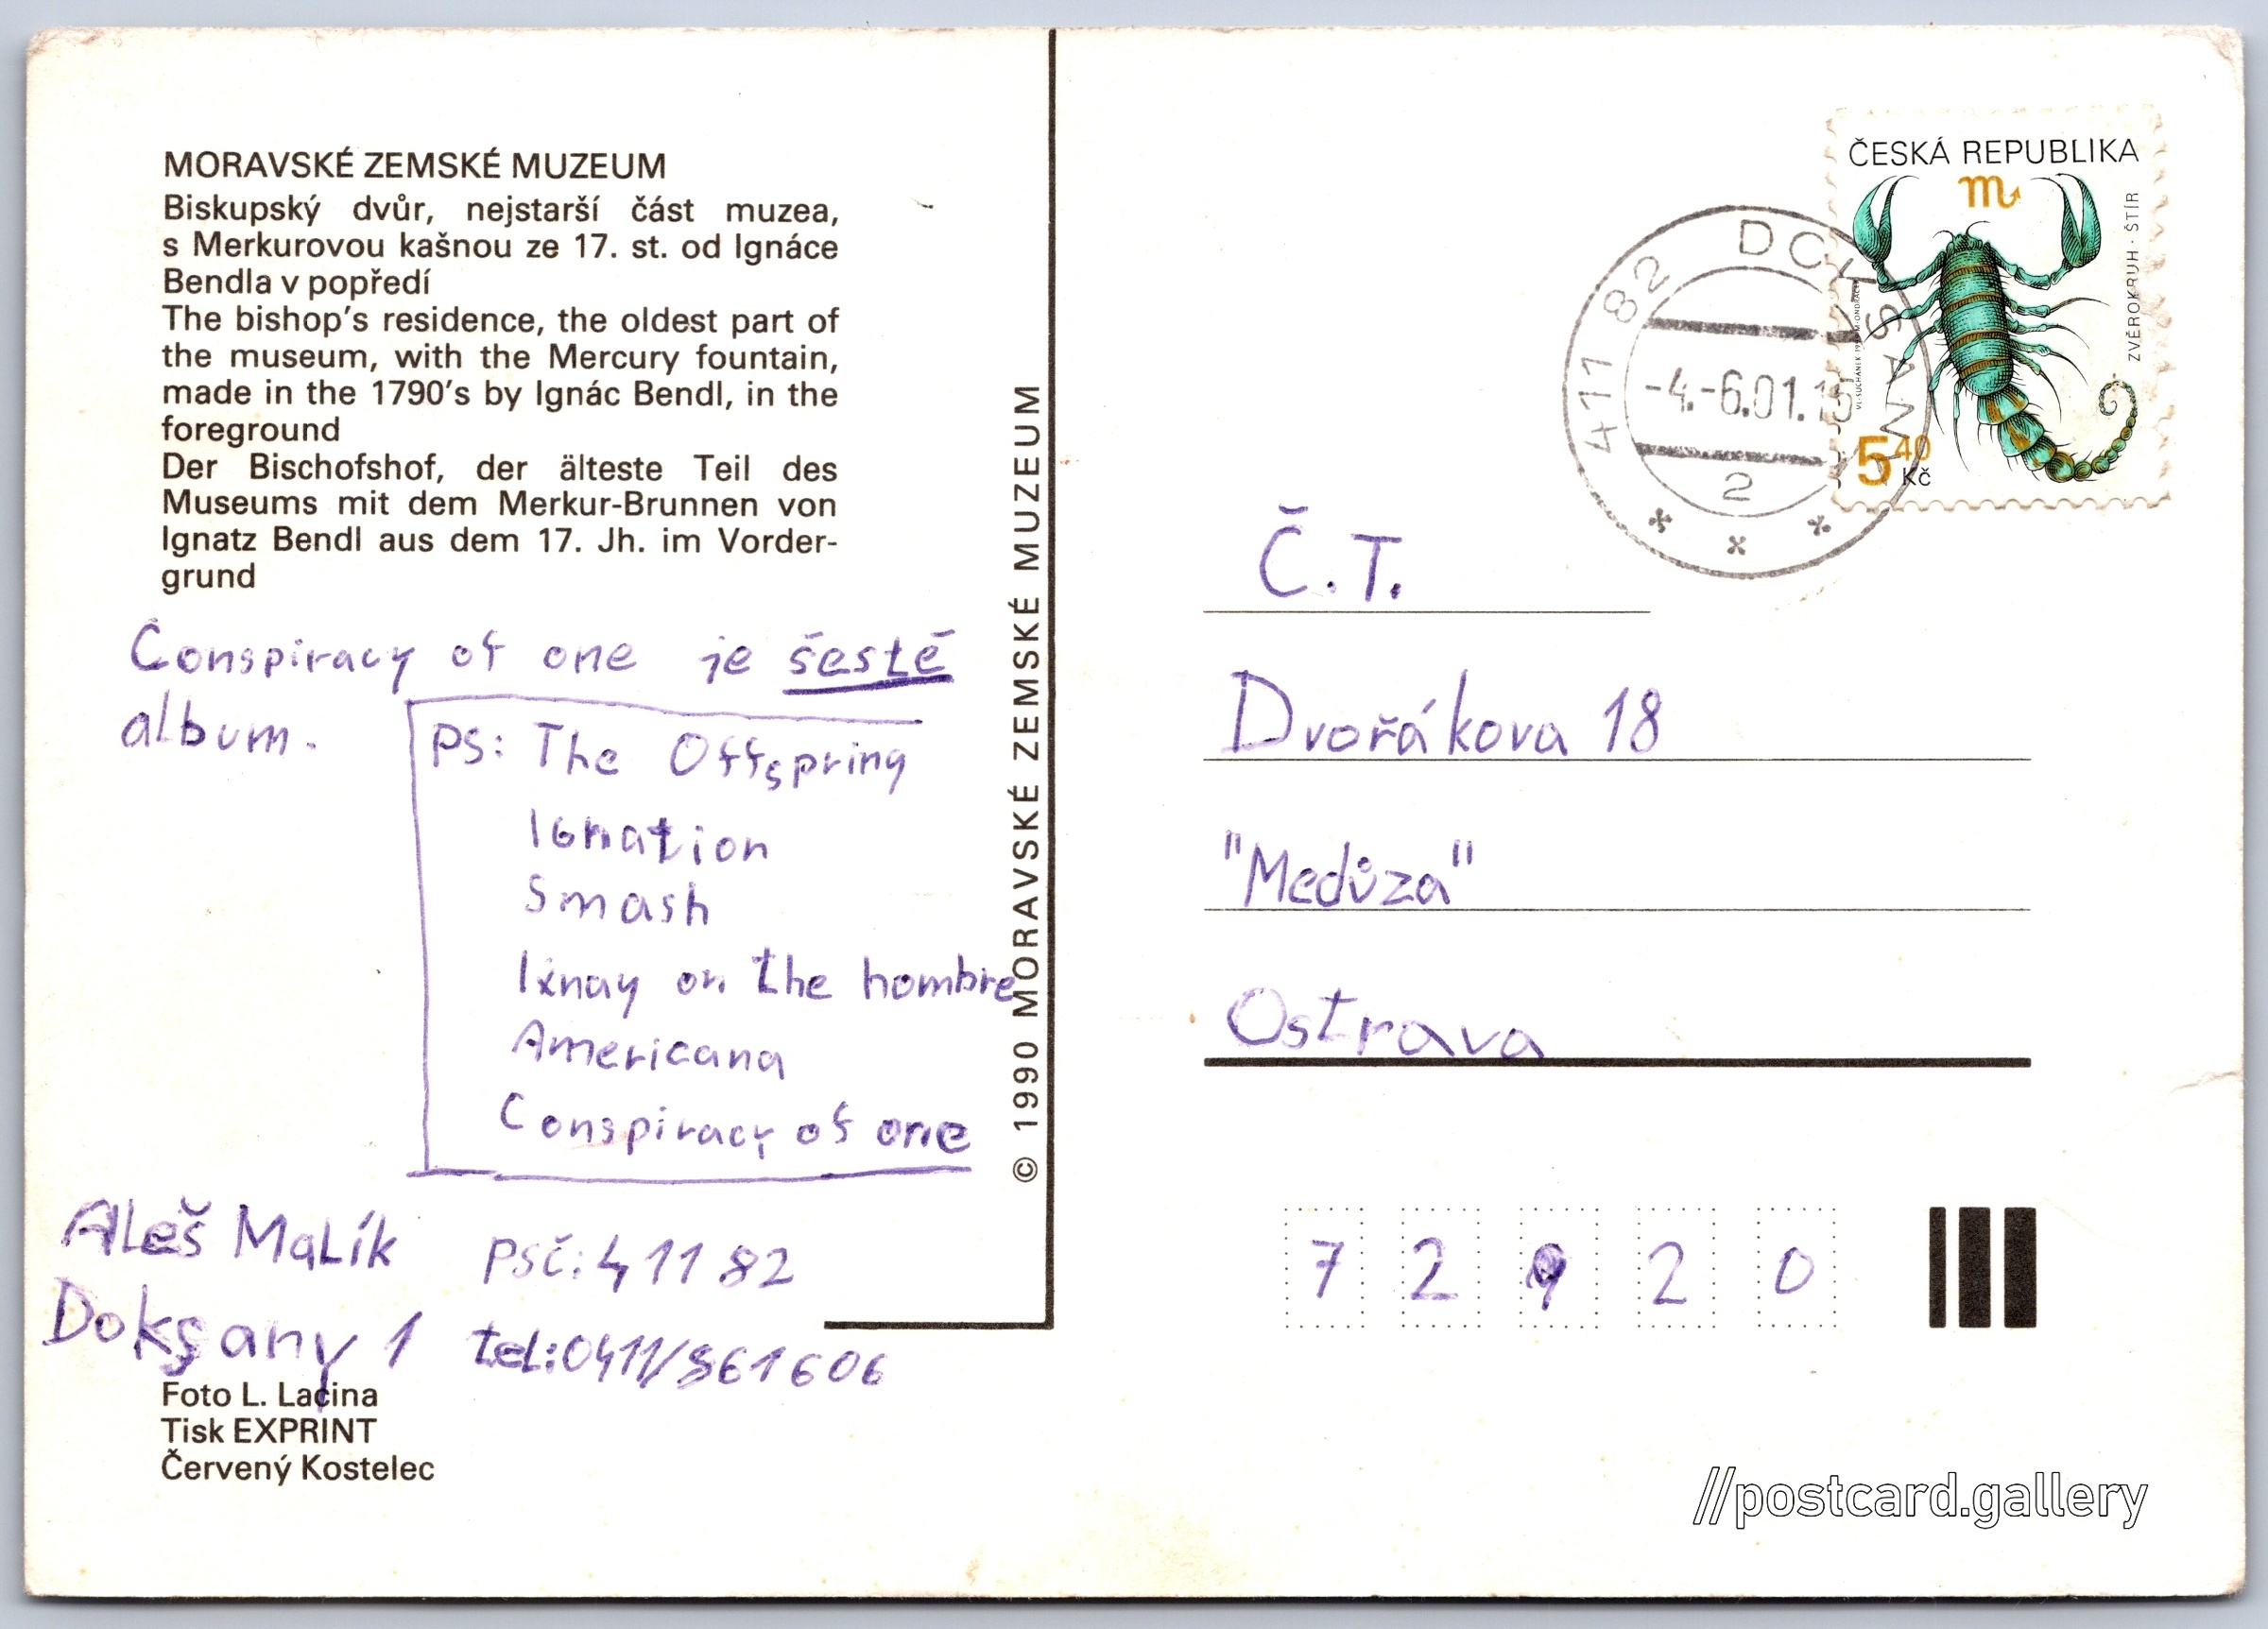 MORAVSKÉ ZEMSKÉ MUZEUM
Biskupský dvůr, nejstarší část muzea,
s Merkurovou kašnou ze 17. st. od Ignáce
Bendla v popředí
The bishop's residence, the oldest part of
the museum, with the Mercury fountain,
made in the 1790's by Ignác Bendl, in the
foreground
Der Bischofshof, der älteste Teil des
Museums mit dem Merkur-Brunnen von
Ignatz Bendl aus dem 17. Jh. im Vorder-
grund
Conspiracy of one je šesté
album.
PS: The Offspring
Ignation
Smash
Ixnay on the hombre
Americana
Conspiracy of one
Aleš Malík
PSČ: 411 82
Doksany 1
tel: 0411/861606
Foto L. Lacina
Tisk EXPRINT
Červený Kostelec
© 1990 MORAVSKÉ ZEMSKÉ MUZEUM
ČESKÁ REPUBLIKA
ZVĚROKRUH · ŠTÍR
5 40
Kč
411 82
-4.-6.01.15
2
Č.T.
Dvořákova 18
"Medůza"
Ostrava
7 2 9 2 0
//postcard.gallery